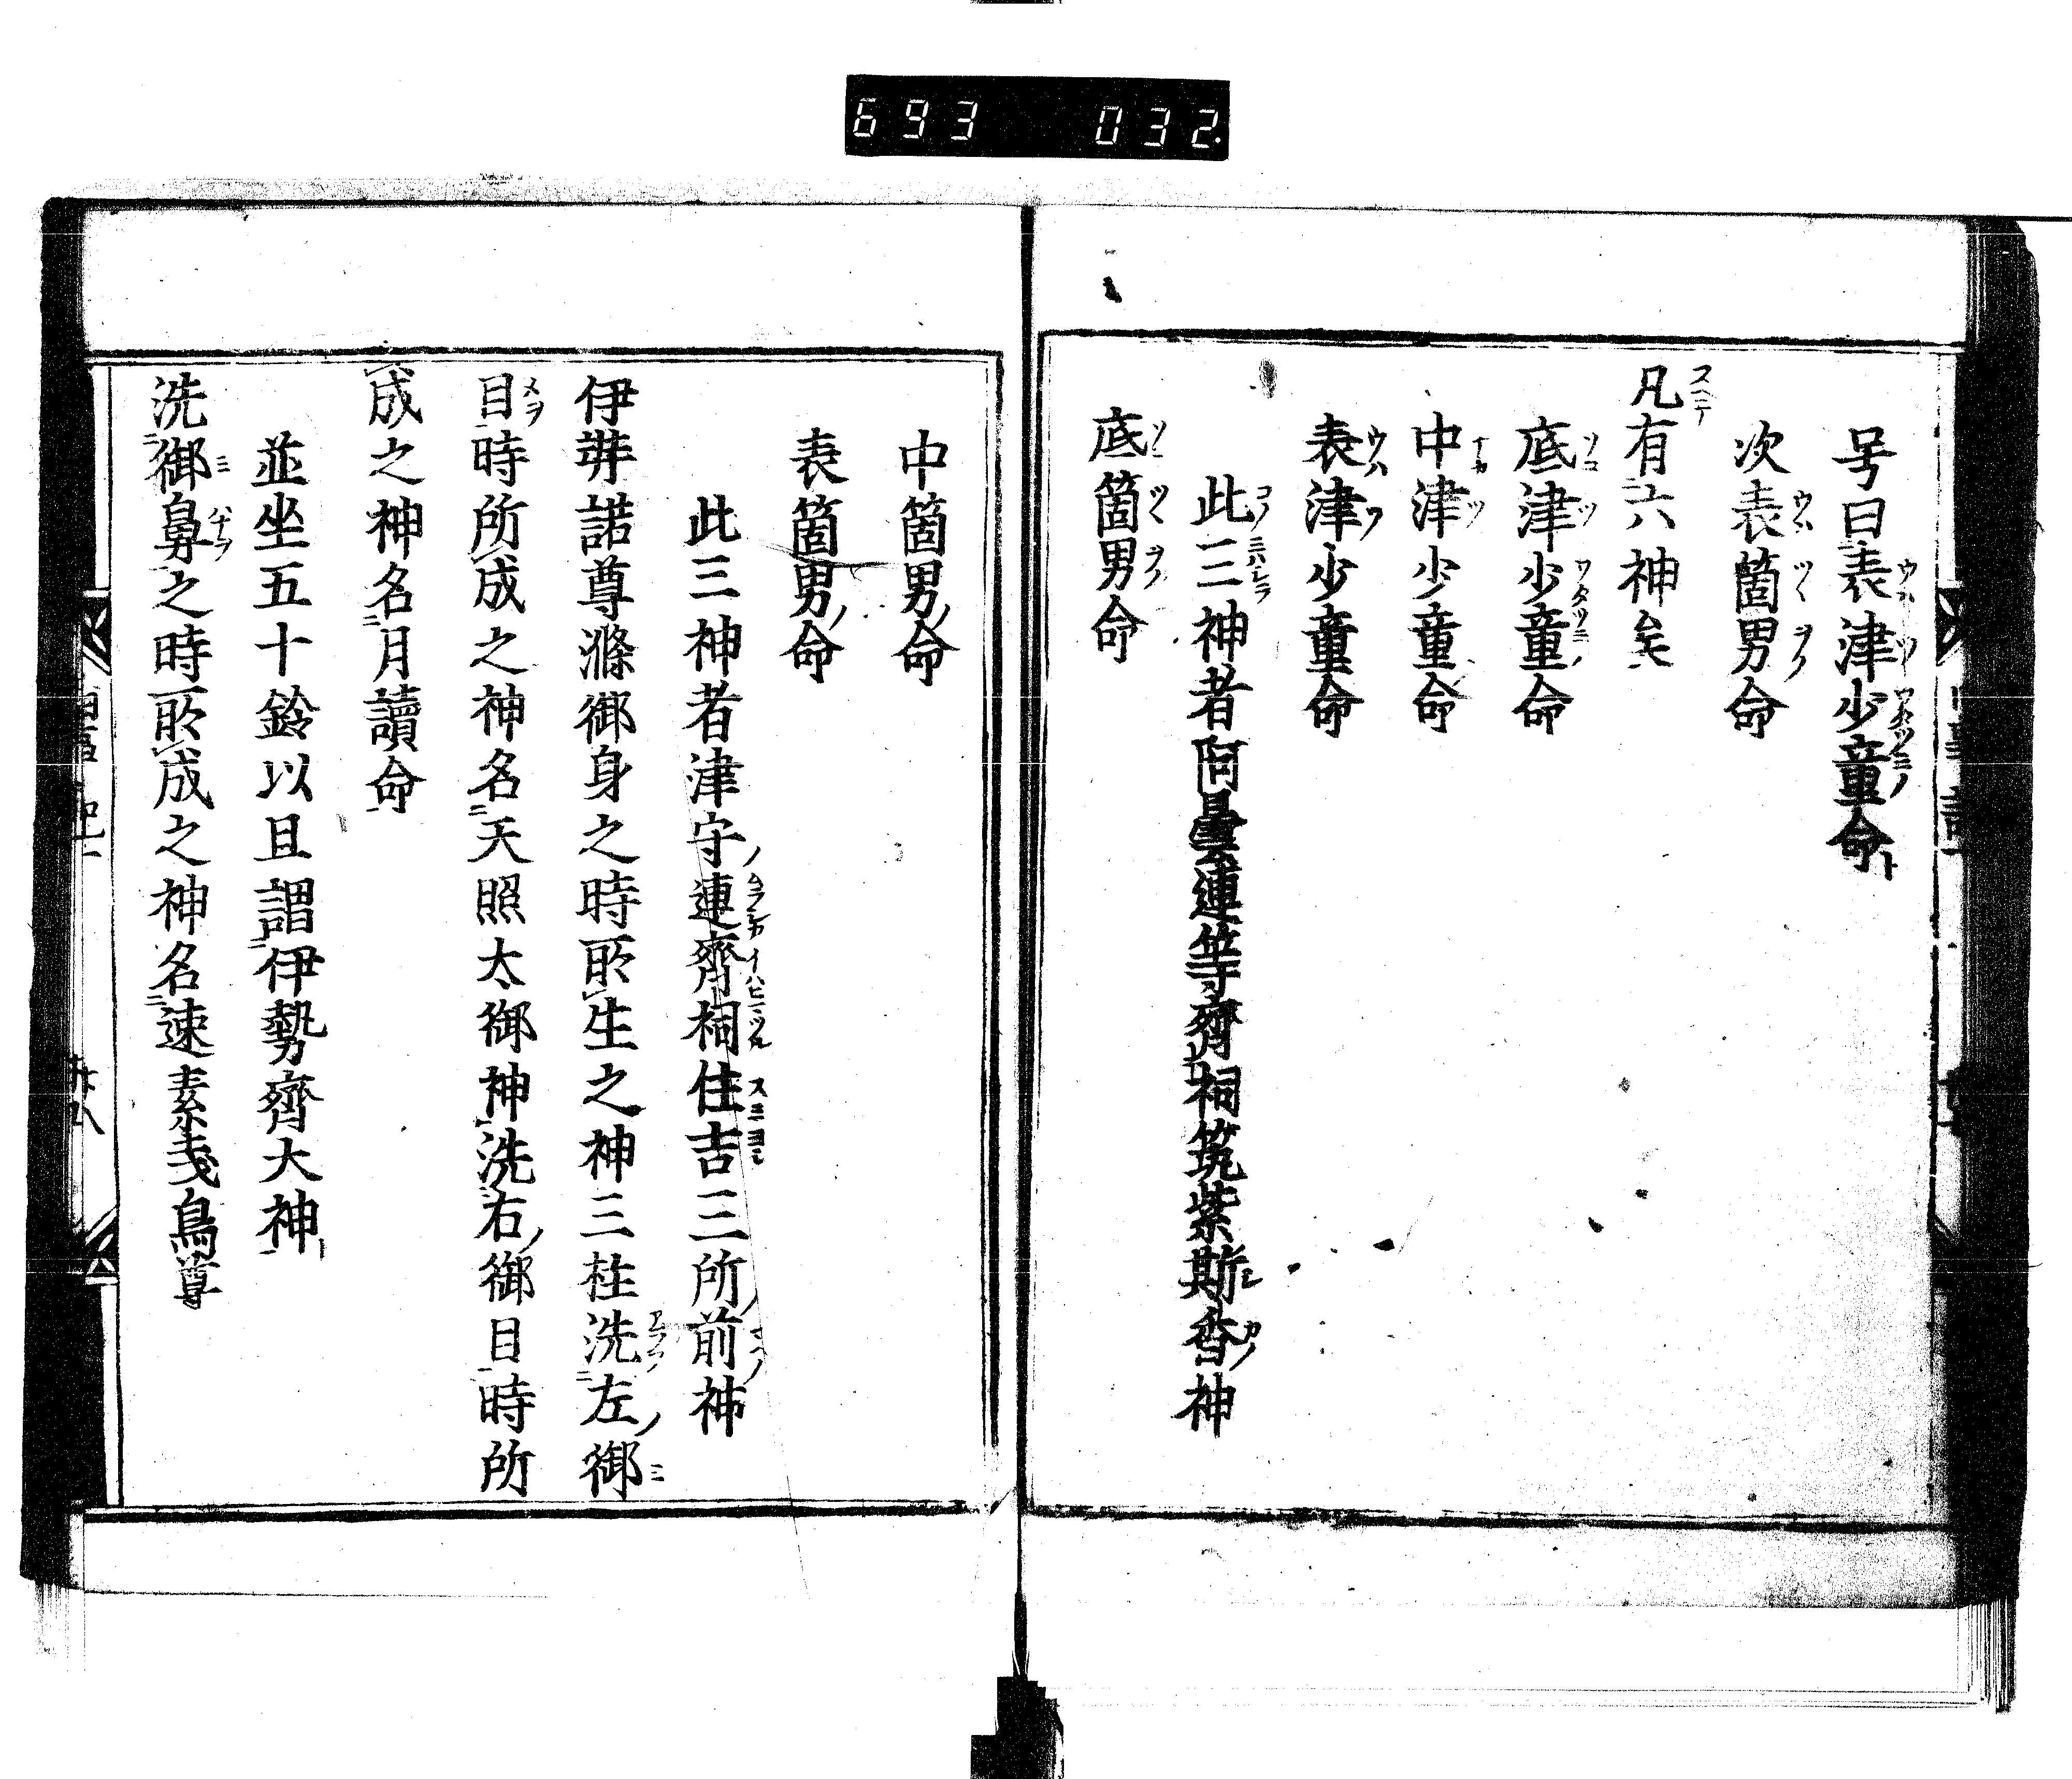 693 032
号曰表津少童命
次表箇男命
凡有六神矣
底津少童命
中津少童命
表津少童命
此三神者阿曇連等齊祠筑紫斯香神
底箇男命
中箇男命
表箇男命
此三神者津守連齊祠住吉三所前神
伊弉諾尊滌御身之時所生之神三柱洗左御
目時所成之神名天照太御神洗右御目時所
成之神名月讀命
並坐五十鈴以且謂伊勢齊大神
洗御鼻之時所成之神名速素戔鳥尊